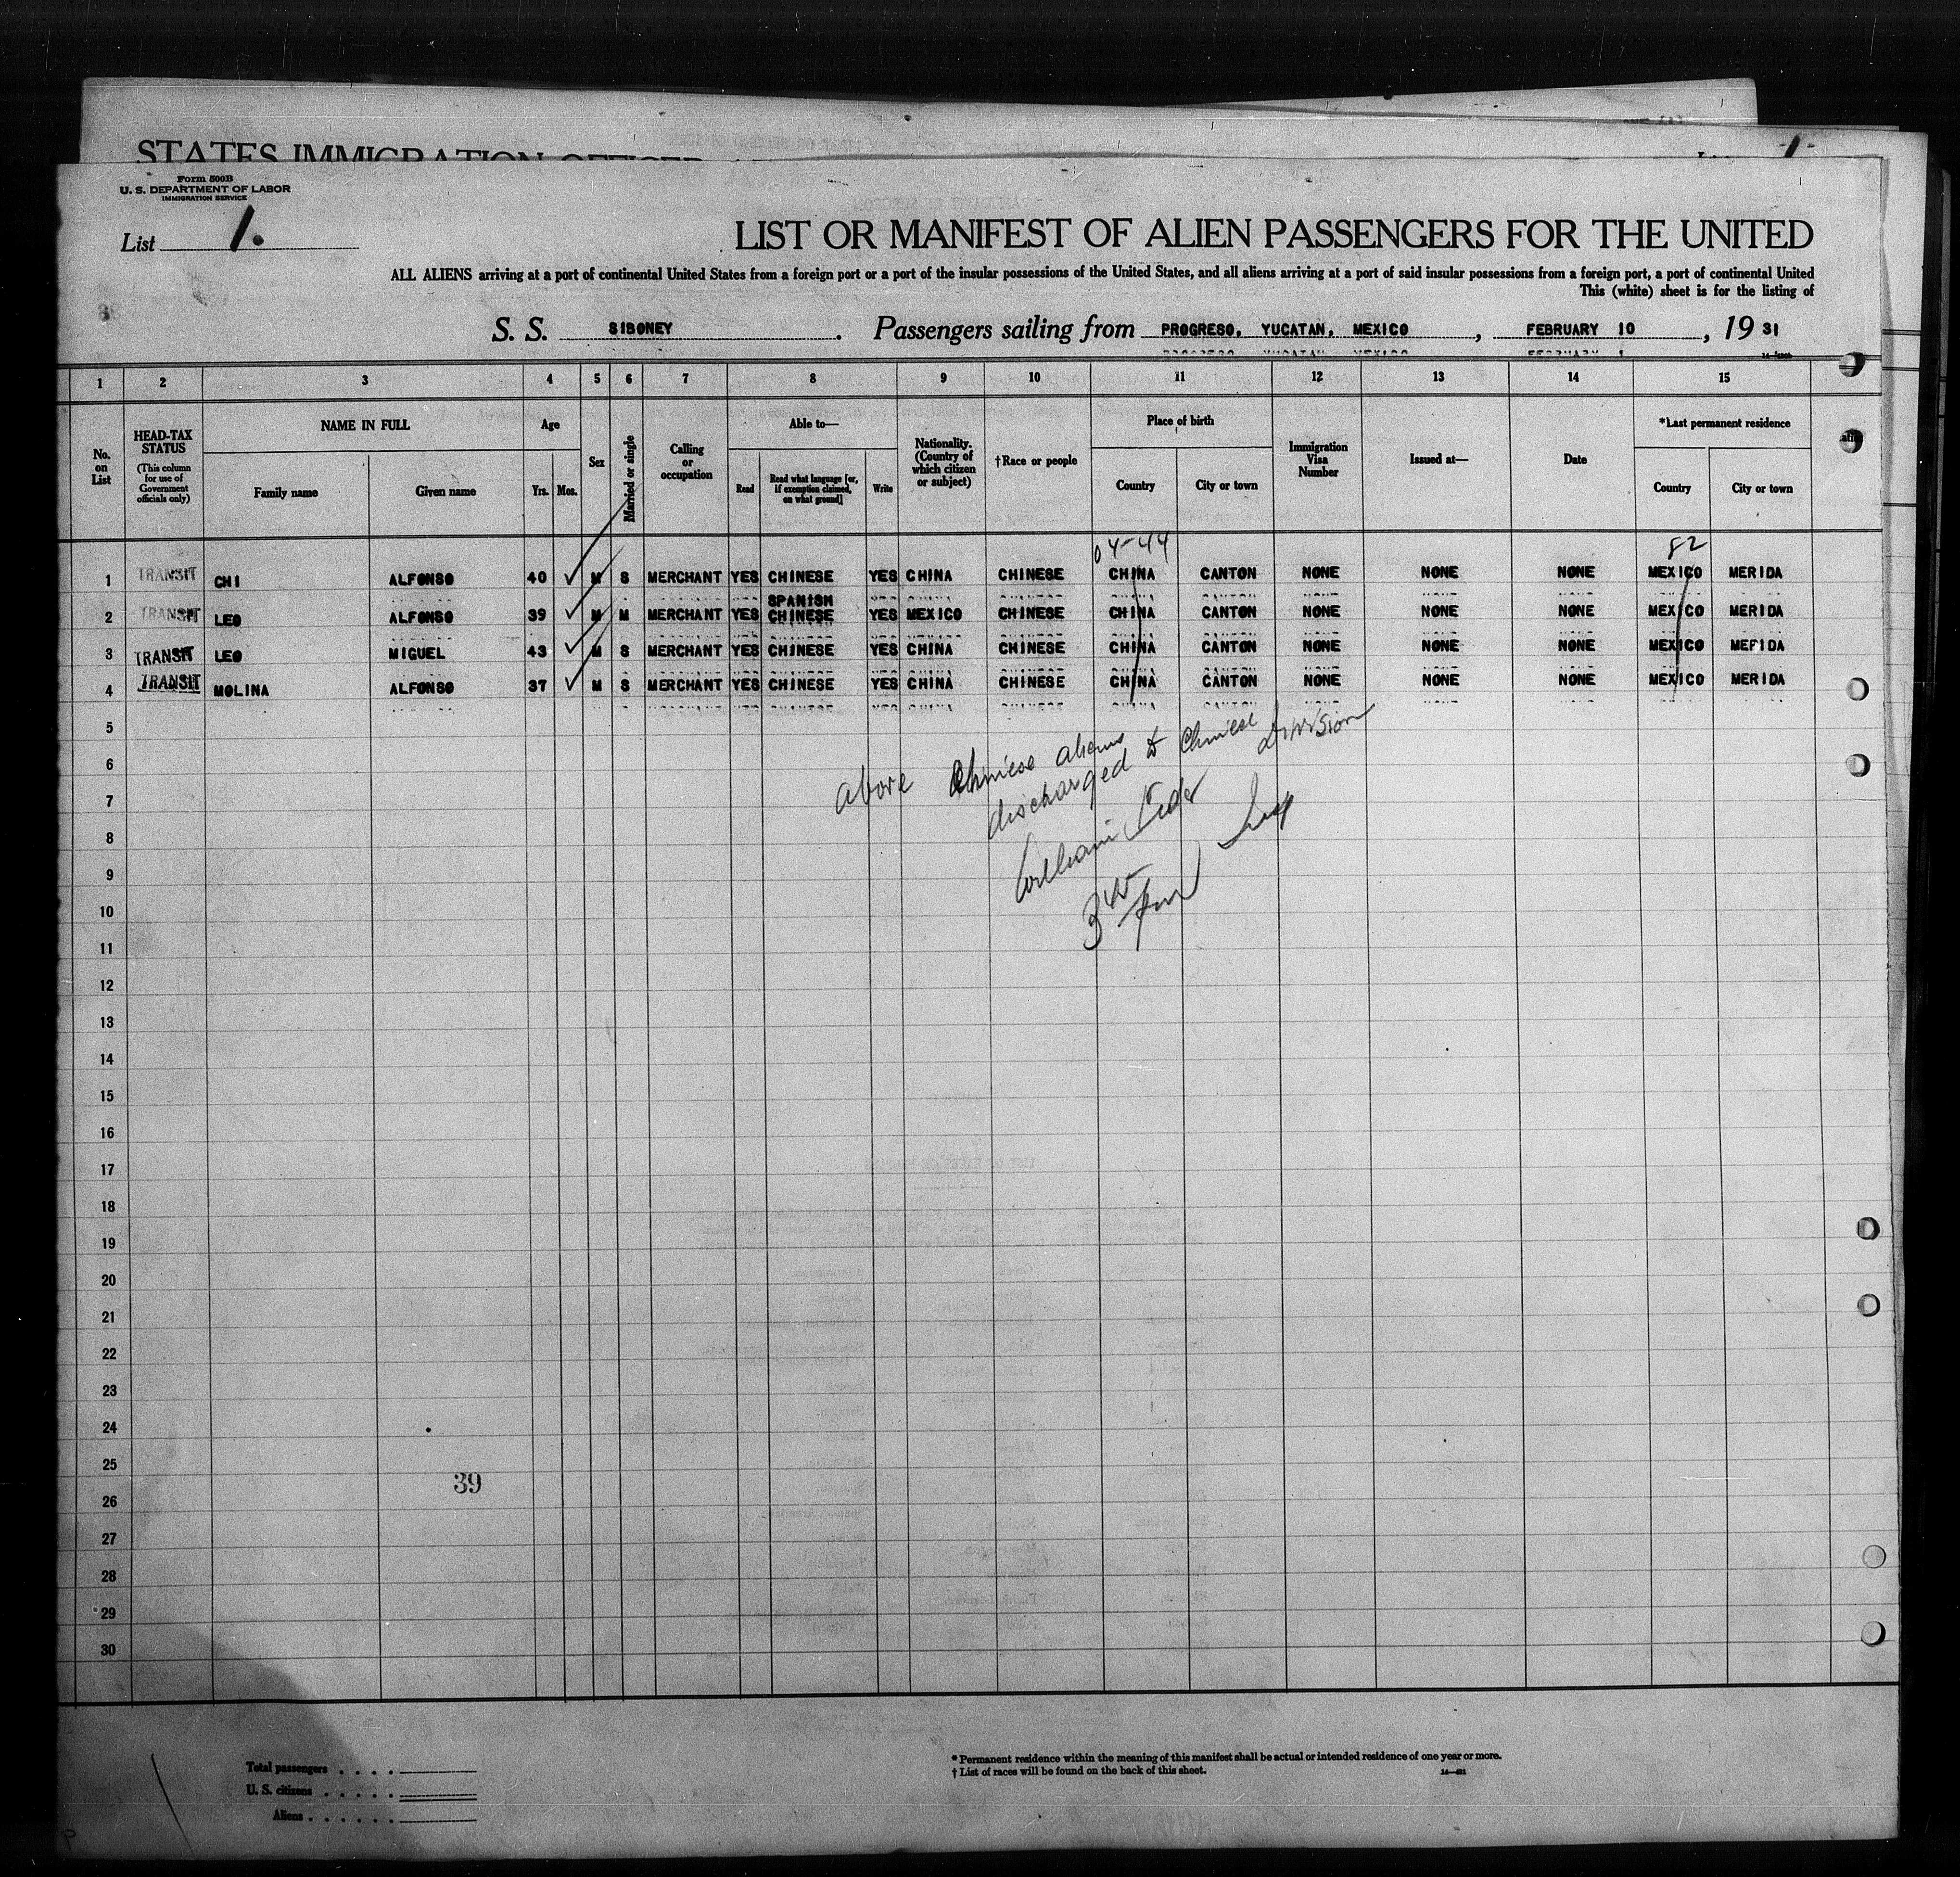 STATES IMMIGRATION OFFICER
Form 500B
U. S. DEPARTMENT OF LABOR
IMMIGRATION SERVICE
List 1.
LIST OR MANIFEST OF ALIEN PASSENGERS FOR THE UNITED
ALL ALIENS arriving at a port of continental United States from a foreign port or a port of the insular possessions of the United States, and all aliens arriving at a port of said insular possessions from a foreign port, a port of continental United
This (white) sheet is for the listing of
S. S. SIBONEY. Passengers sailing from PROGRESO, YUCATAN, MEXICO, FEBRUARY 10, 19 31
1 2 3 4 5 6 7 8 9 10 11 12 13 14 15
No. on List
HEAD-TAX STATUS
(This column for use of Government officials only)
NAME IN FULL
Family name Given name
Age
Yrs. Mos.
Sex
Married or single
Calling or occupation
Able to—
Read
Read what language [or, if exemption claimed, on what ground]
Write
Nationality. (Country of which citizen or subject)
†Race or people
Place of birth
Country City or town
Immigration Visa Number
Issued at—
Date
*Last permanent residence
Country City or town
04-44 82
1 TRANSIT CHI ALFONSO 40 M S MERCHANT YES CHINESE YES CHINA CHINESE CHINA CANTON NONE NONE NONE MEXICO MERIDA
SPANISH
2 TRANSIT LEO ALFONSO 39 M M MERCHANT YES CHINESE YES MEXICO CHINESE CHINA CANTON NONE NONE NONE MEXICO MERIDA
3 TRANSIT LEO MIGUEL 43 M S MERCHANT YES CHINESE YES CHINA CHINESE CHINA CANTON NONE NONE NONE MEXICO MERIDA
4 TRANSIT MOLINA ALFONSO 37 M S MERCHANT YES CHINESE YES CHINA CHINESE CHINA CANTON NONE NONE NONE MEXICO MERIDA
5
6
7
8
9
10
11
12
13
14
15
16
17
18
19
20
21
22
23
24
25
26
27
28
29
30
above Chinese aliens
discharged to Chinese Division
William
3 45 pm
39
Total passengers
U. S. citizens
Aliens
* Permanent residence within the meaning of this manifest shall be actual or intended residence of one year or more.
† List of races will be found on the back of this sheet.